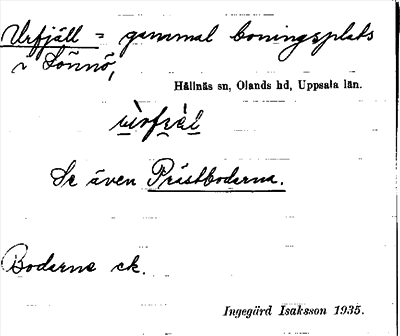 Urfjäll = gammal boningsplats
i Lönnö,
Hållnäs sn, Olands hd, Uppsala län.
Se även Prästboderna.
Boderne ek.
Ingegärd Isaksson 1935.